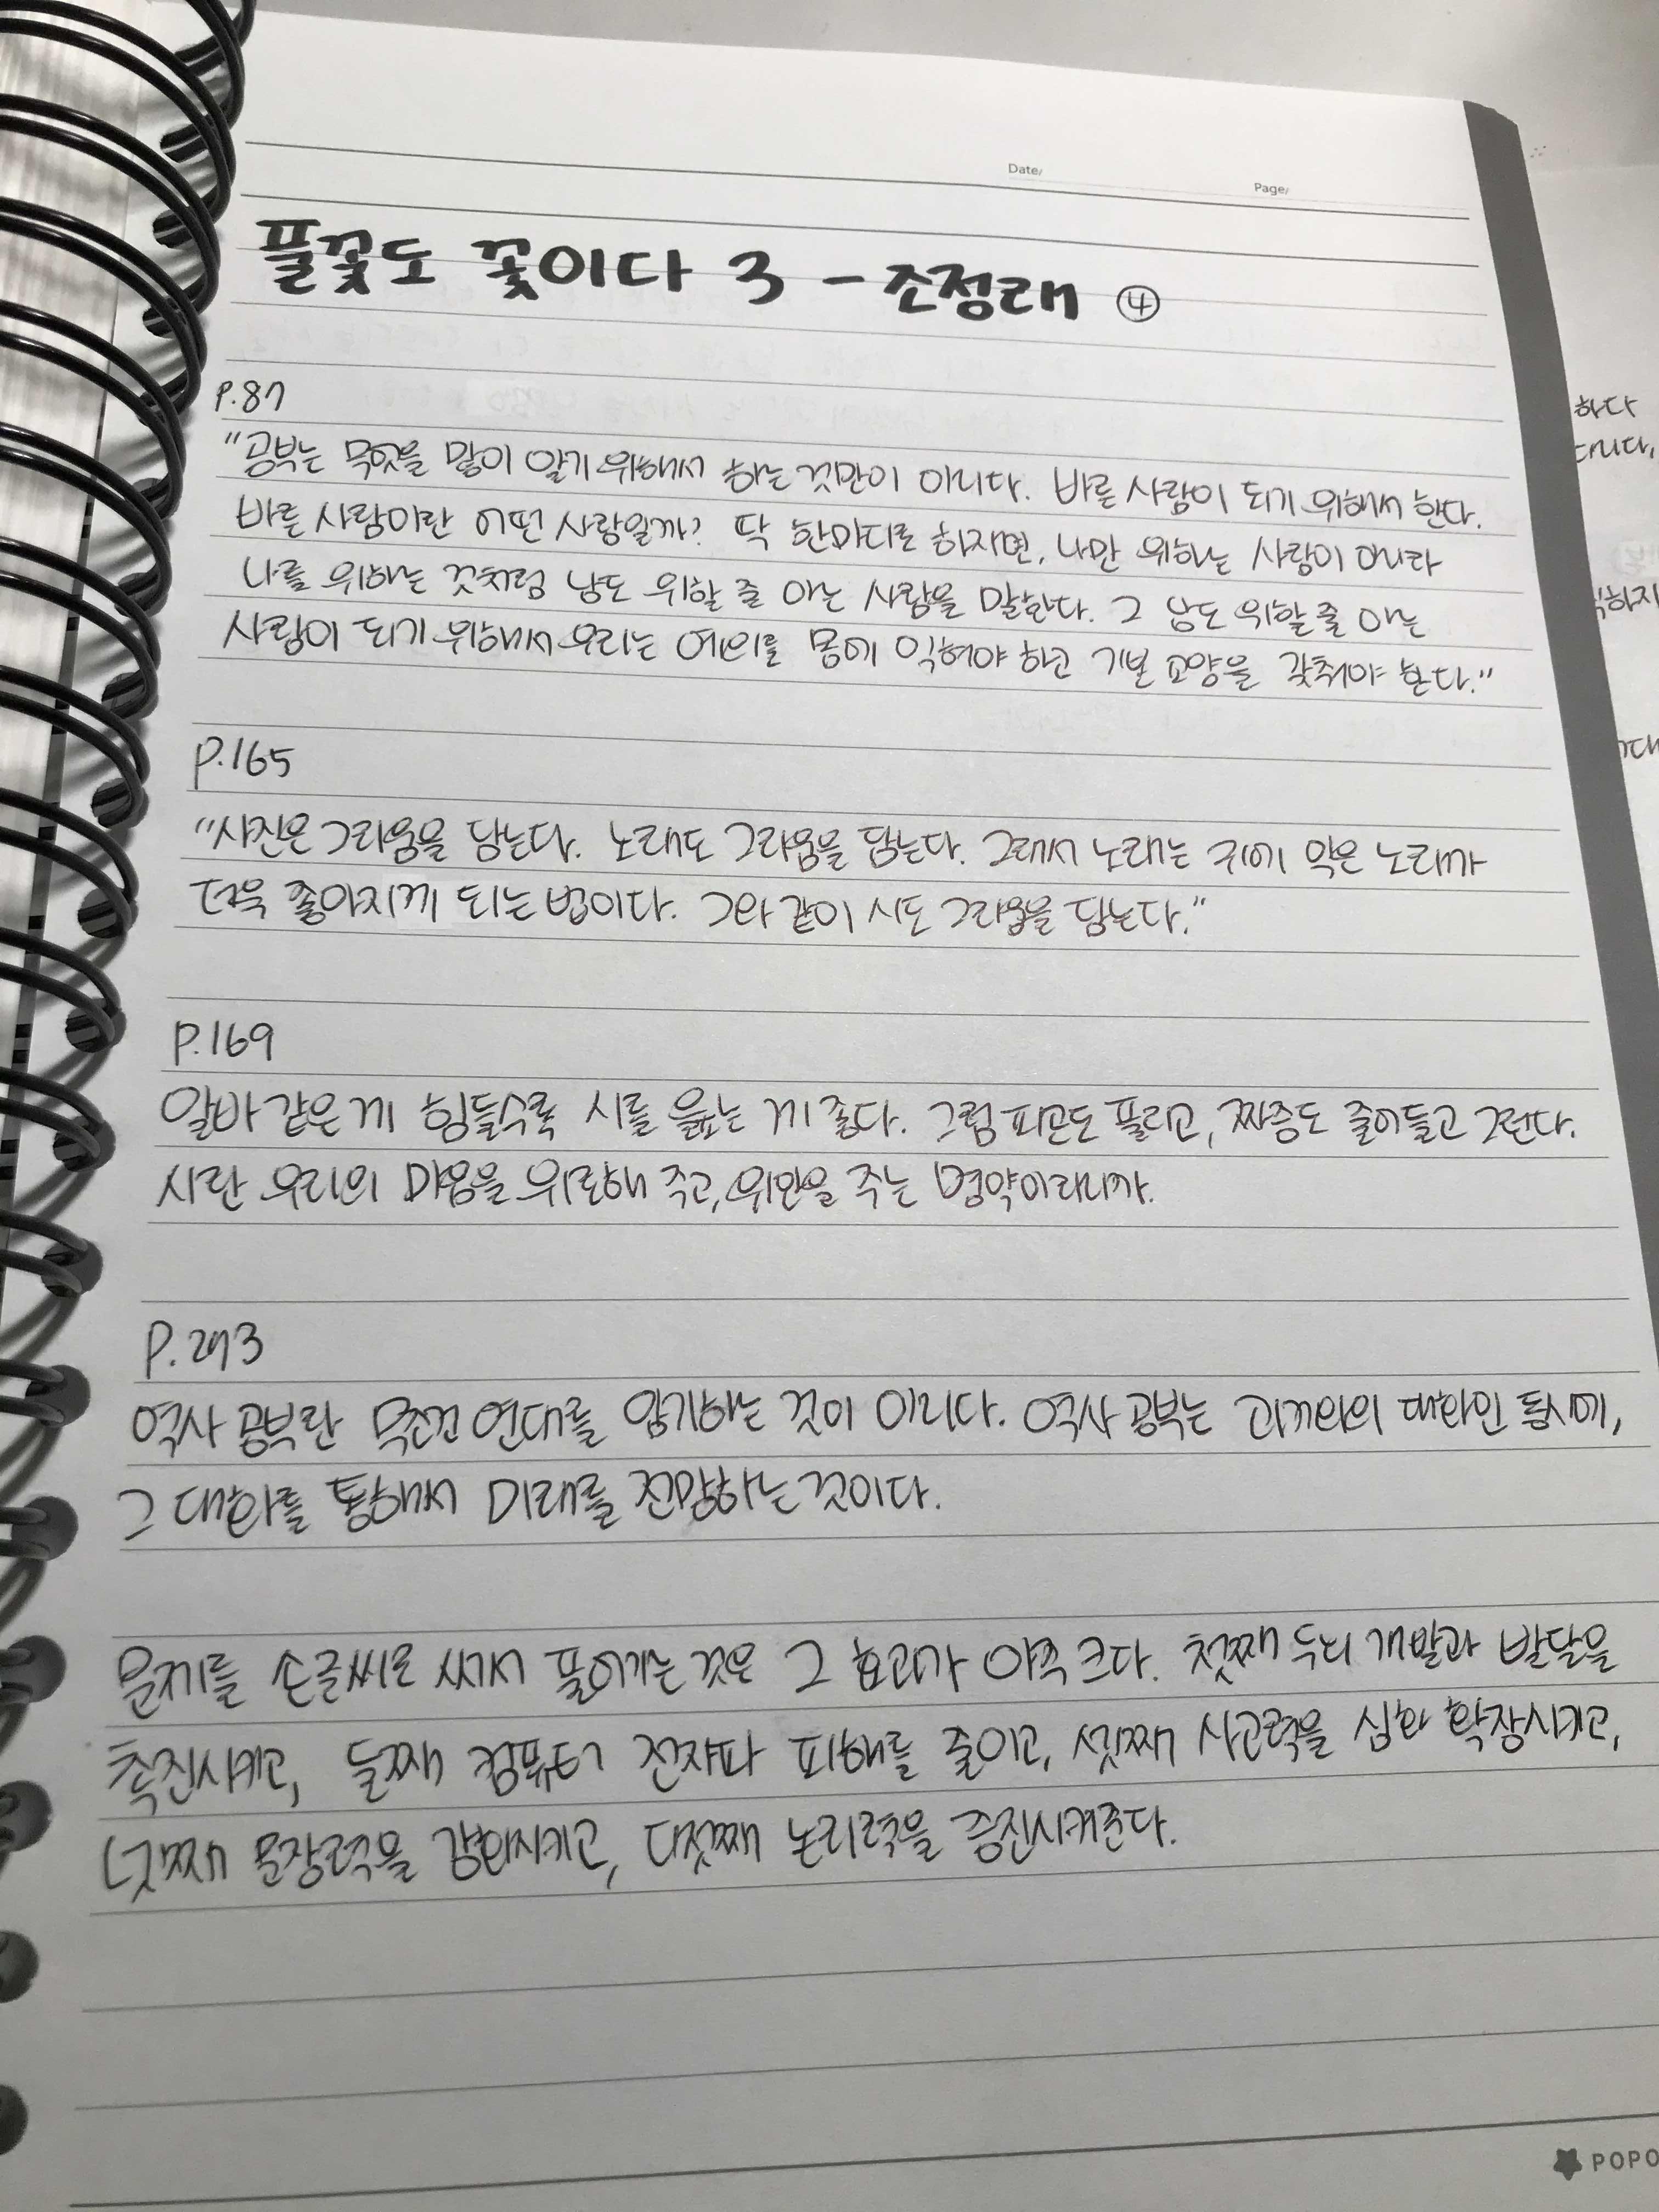 Date/
Page/
풀꽃도 꽃이다 3 - 조정래 ④
P.87
"공부는 무엇을 많이 알기 위해서 하는 것만이 아니다. 바른 사람이 되기 위해서 한다.
바른 사람이란 어떤 사람일까? 딱 한마디로 하자면, 나만 위하는 사람이 아니라
나를 위하는 것처럼 남도 위할 줄 아는 사람을 말한다. 그 남도 위할 줄 아는
사람이 되기 위해서 우리는 예의를 몸에 익혀야 하고 기본 교양을 갖춰야 한다."
P.165
"사진은 그리움을 담는다. 노래도 그리움을 담는다. 그래서 노래는 귀에 익은 노래가
더욱 좋아지게 되는 법이다. 그와 같이 시도 그리움을 담는다."
P.169
알바 같은 게 힘들수록 시를 읊는 게 좋다. 그럼 피곤도 풀리고, 짜증도 줄어들고 그런다.
시란 우리의 마음을 위로해 주고, 위안을 주는 명약이라니까.
P.293
역사 공부란 무조건 연대를 암기하는 것이 아니다. 역사 공부는 과거와의 대화인 동시에,
그 대화를 통해서 미래를 전망하는 것이다.
문제를 손글씨로 써서 풀어가는 것은 그 효과가 아주 크다. 첫째 두뇌 개발과 발달을
촉진시키고, 둘째 컴퓨터 전자파 피해를 줄이고, 셋째 사고력을 심화 확장시키고,
넷째 문장력을 강화시키고, 다섯째 논리력을 증진시켜준다.
하다
니다,
하지
POPO